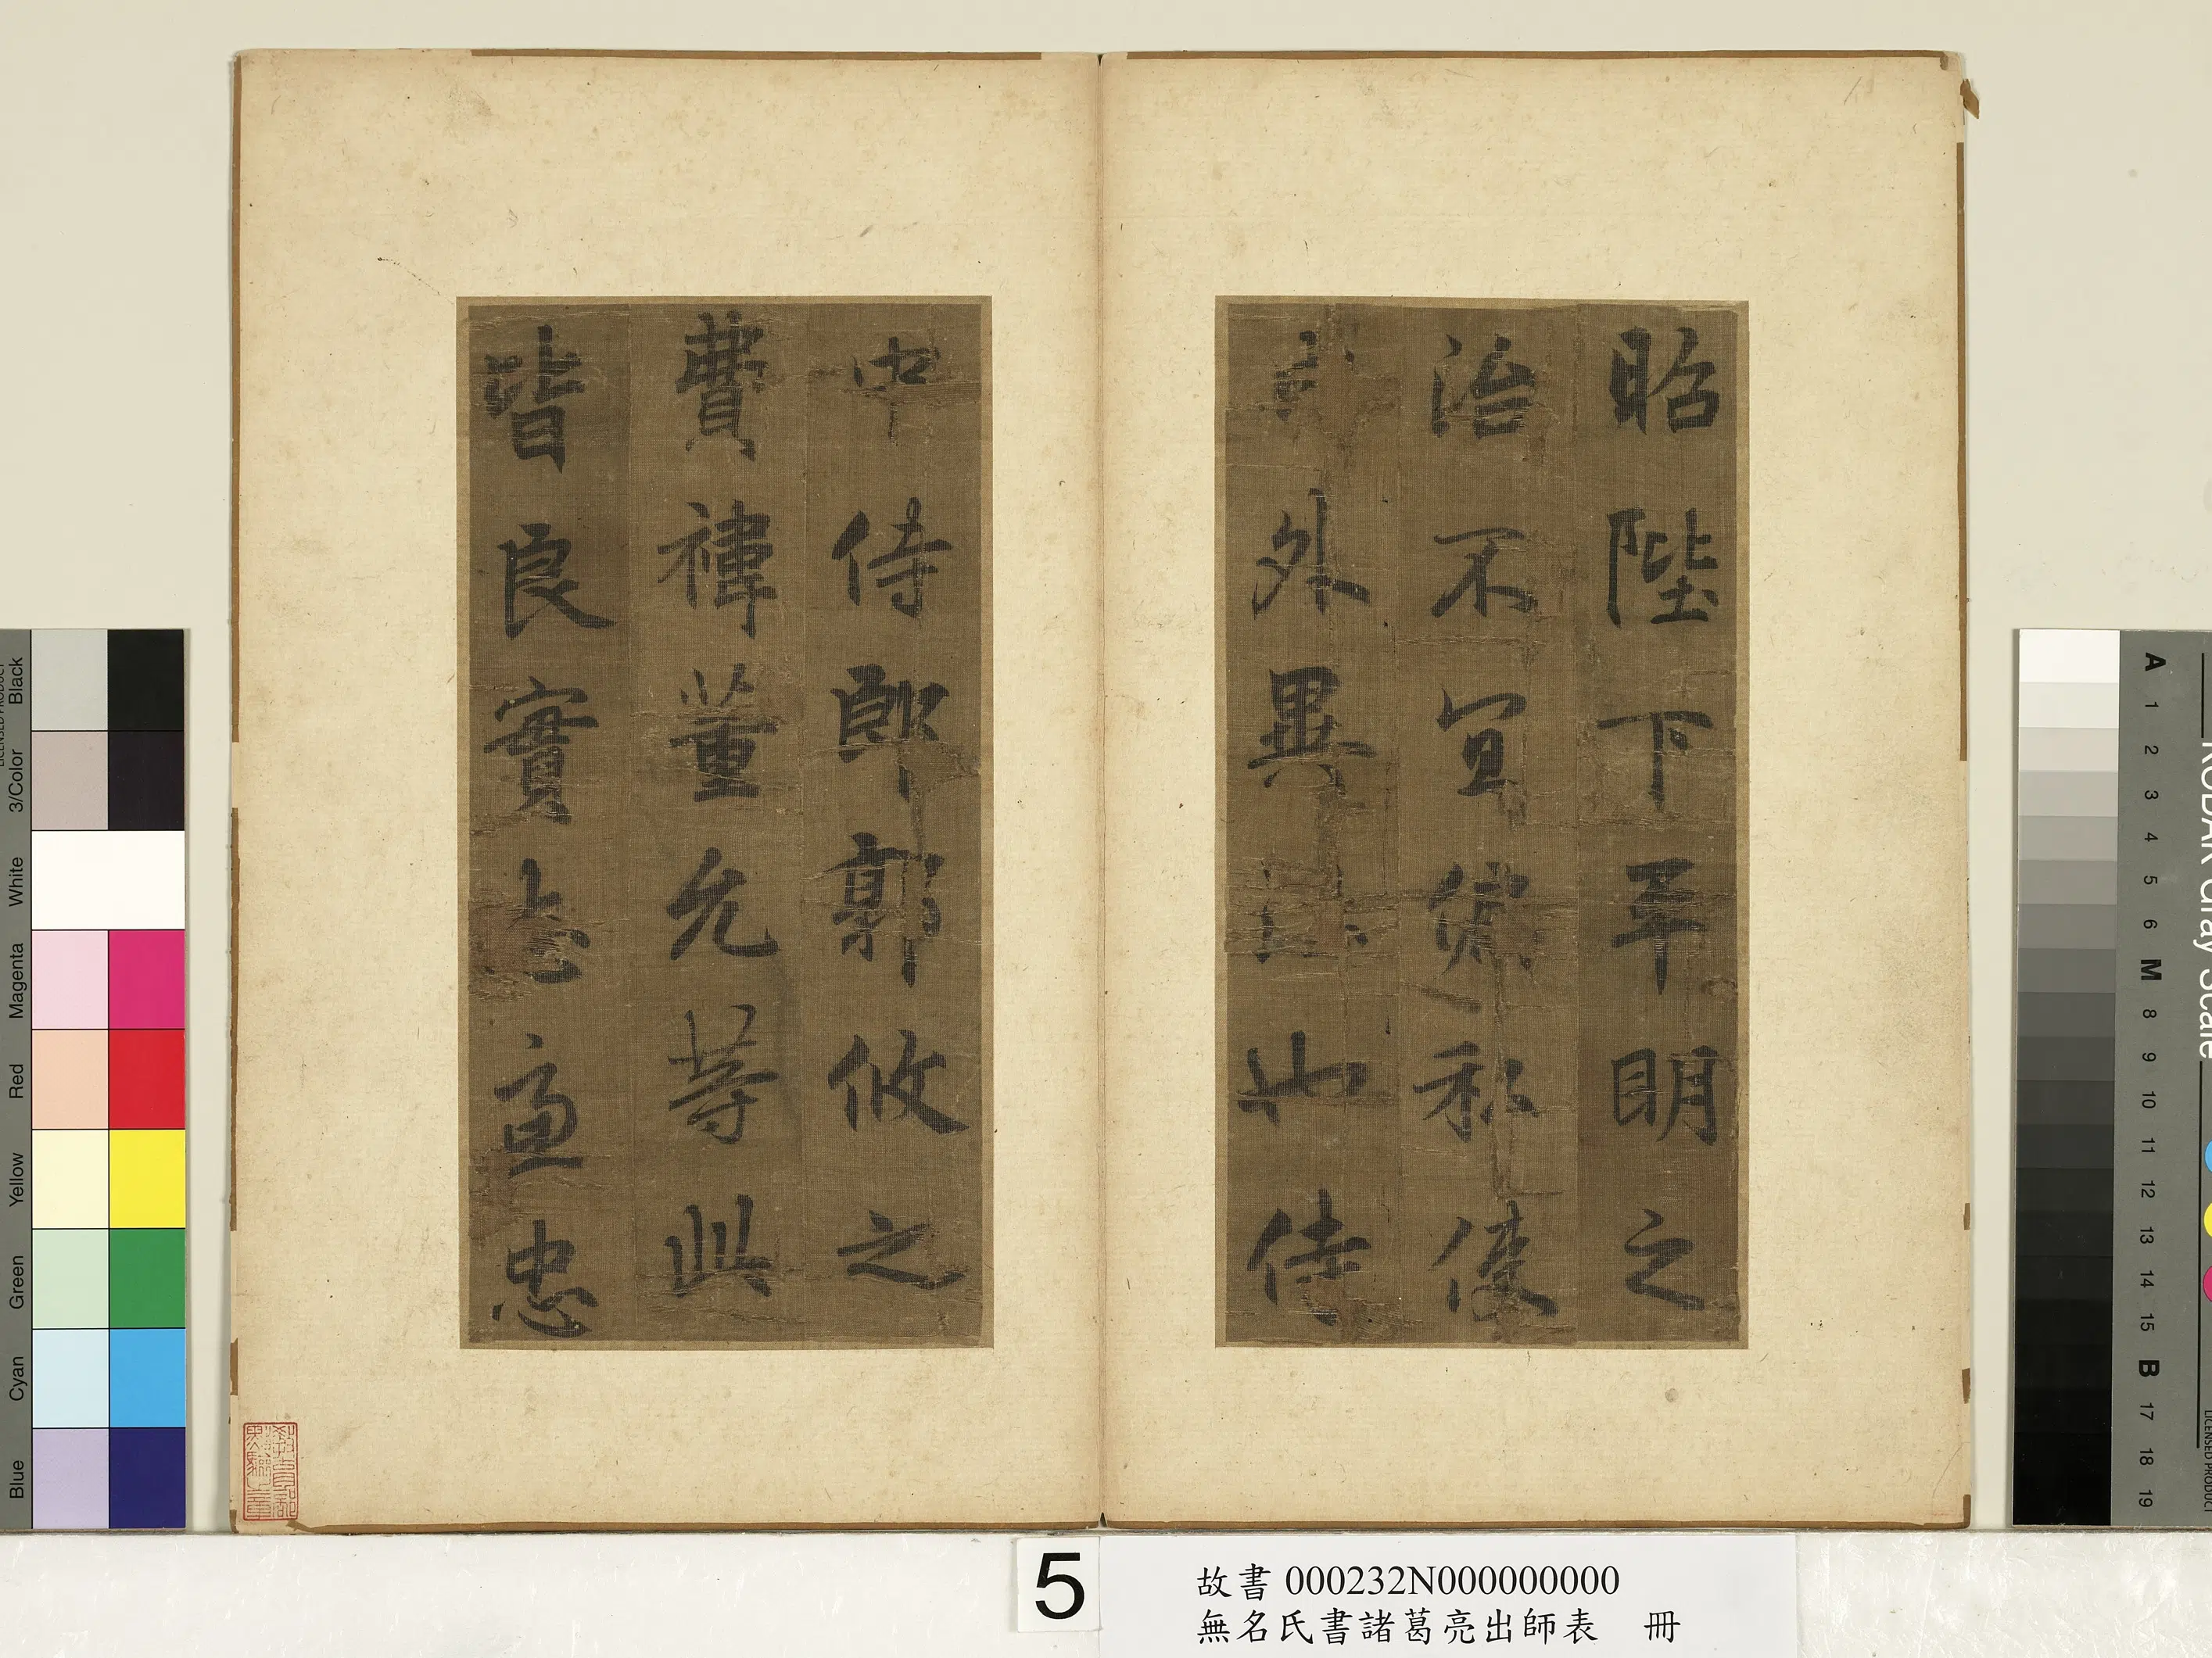 昭陛下平明之
治不宜偏私使
外異也侍
中侍郎郭攸之
費禕董允等此
皆良實志慮忠
教育部
點驗之章
5
故書 000232N000000000
無名氏書諸葛亮出師表 冊
Black
3/Color
White
Magenta
Red
Yellow
Green
Cyan
Blue
KODAK Gray Scale
A 1 2 3 4 5 6 M 8 9 10 11 12 13 14 15 B 17 18 19
LICENSED PRODUCT